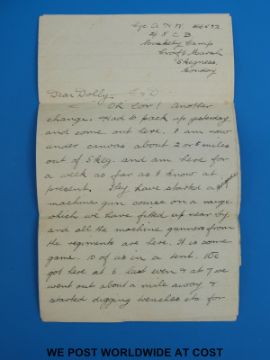 Musketry Camp
Skegness
Sunday
Dear Dolly
Oh Lor! Another
change. Had to pack up yesterday
and come out here. I am now
under canvas about 2 or 3 miles
out of Skeg. and am here for
a week as far as I know at
present. They have started a
machine gun course on a range
which we have fitted up near by
and all the machine gunners from
the regiments are here. It is some
game. 10 of us in a tent. We
got here at 6 last even & at 7 we
went out about a mile away &
started digging trenches etc for
WE POST WORLDWIDE AT COST